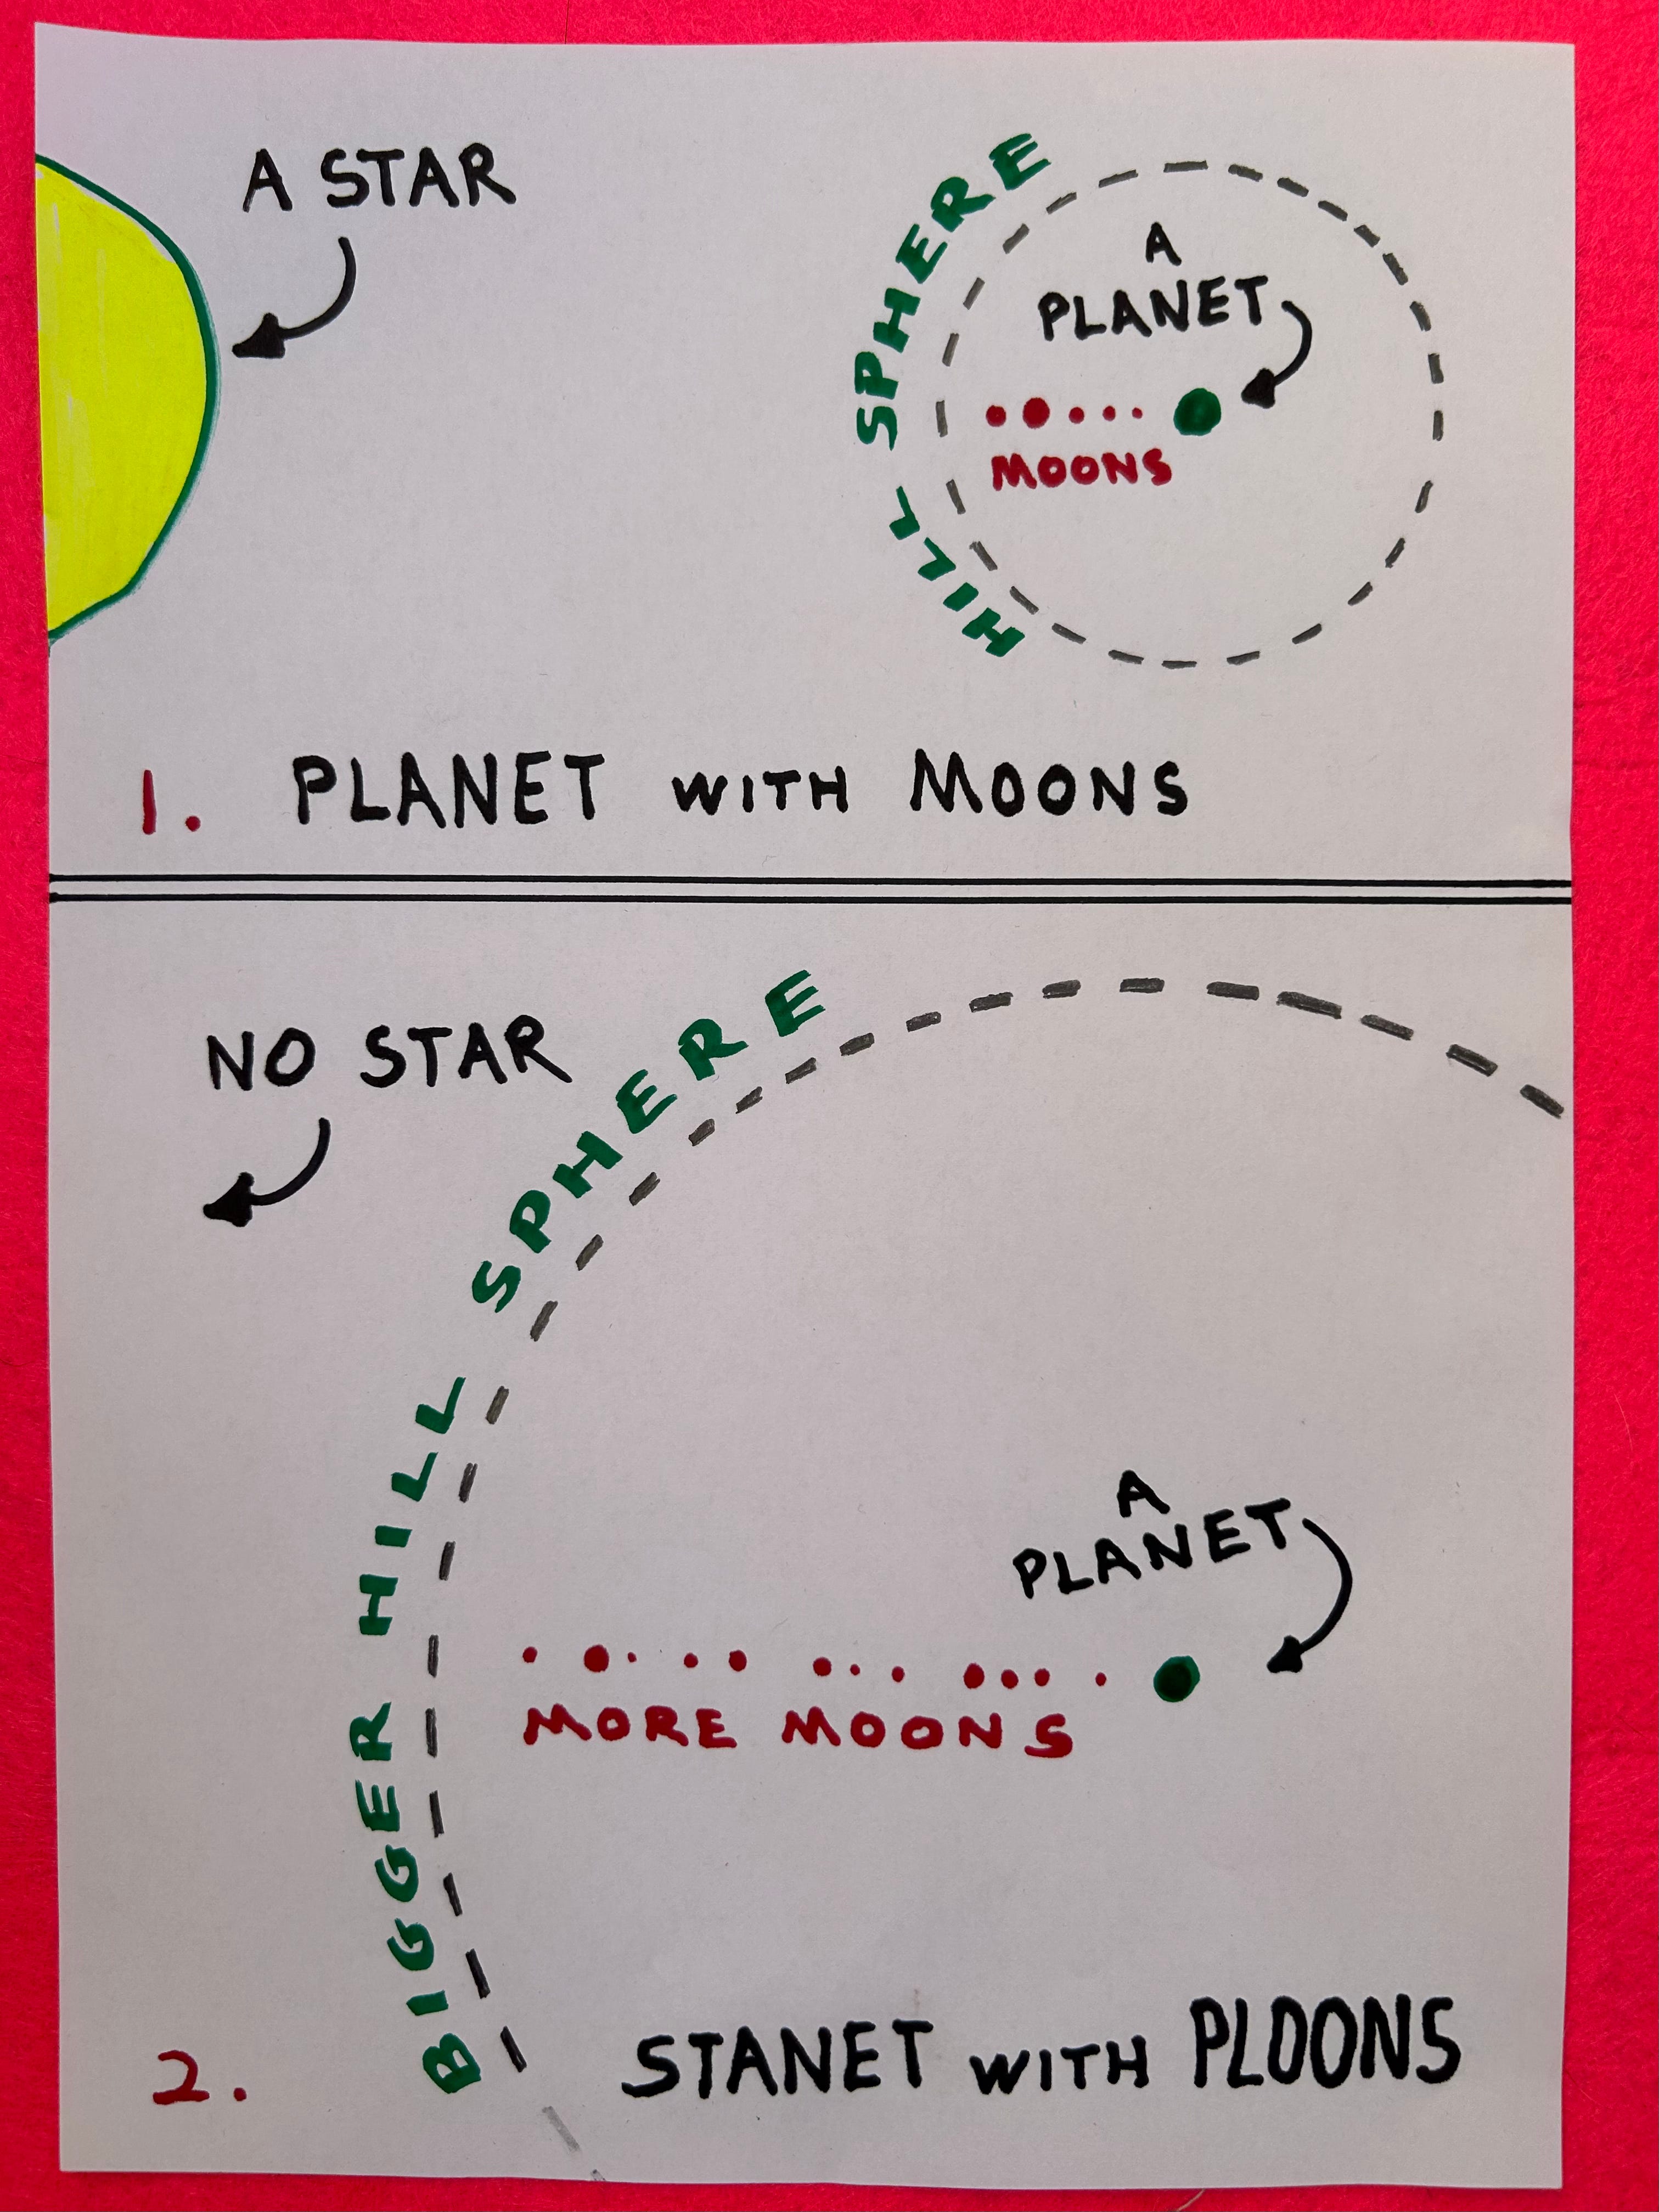 A STAR
HILL SPHERE
A
PLANET
MOONS
1. PLANET WITH MOONS
NO STAR
BIGGER HILL SPHERE
A
PLANET
MORE MOONS
2. STANET WITH PLOONS